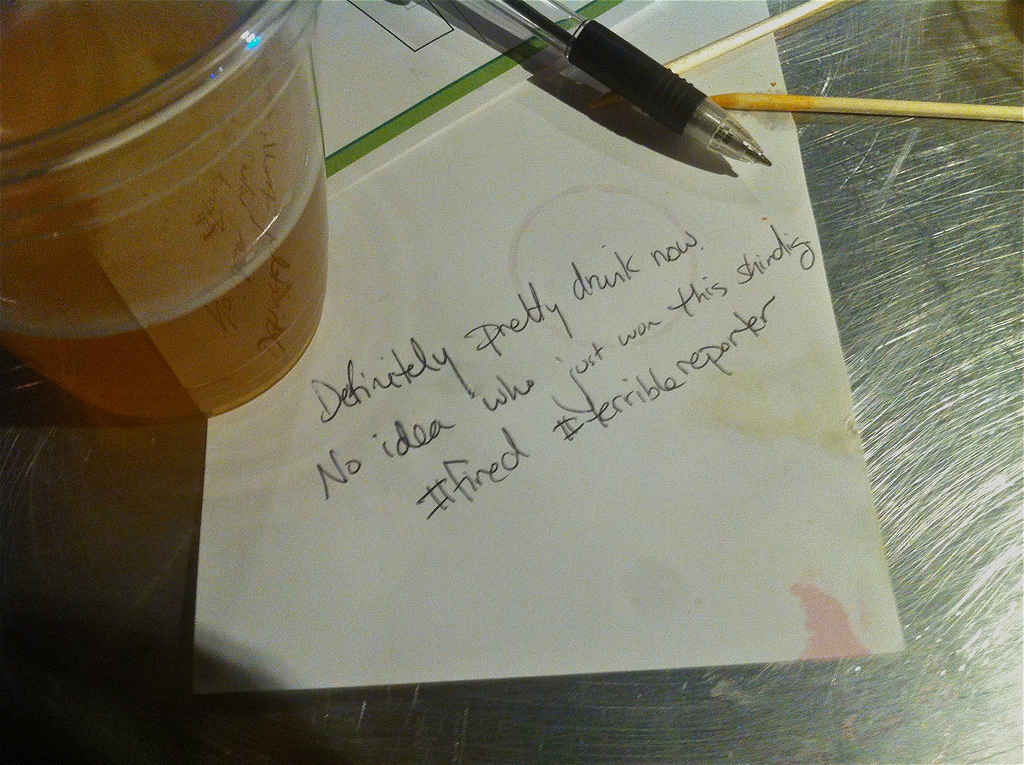 Definitely pretty drunk now.
No idea who just won this shindig
#Fired #terriblereporter